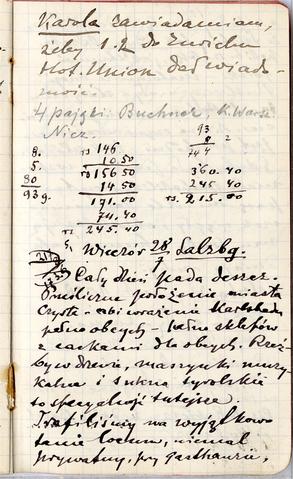 Karola zawiadamiam,
żeby 1.2 do Zurichu
Hot. Union dał wiado-
mość.
4 pająki: Buchner, K. Warsz.
Nicz.
93
8 2
744
8.
5.
80
93 g.
rs 146
10.50
rs 156 50
14 50
171.00
74.40
rs. 245.40
360.40
245 40
rs. 215.00
Wieczór 28/7 Salzbg.
Cały dzień pada deszcz.
Prześliczne położenie miasta
Czyste – robi wrażenie Karlsbadu
pełno obcych – pełno sklepów
z cackami dla obcych. Rzeź-
by w drzewie, maszynki muzy-
kalne i sukna tyrolskie
to specjalność tutejsza.
Trafiliśmy na wyjątkowo
tanie locum, niemal
prywatny, przy gasthauzie,